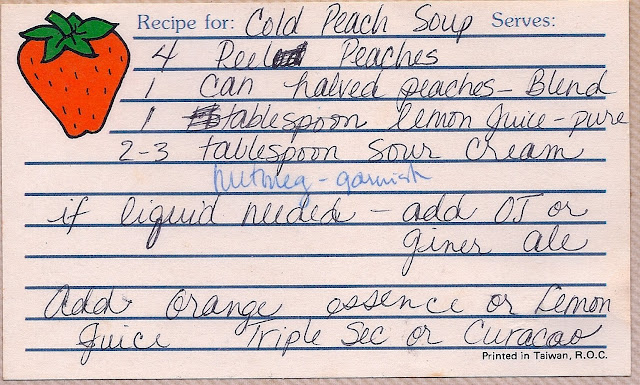 Recipe for: Cold Peach Soup Serves:
4 Peeled Peaches
1 can halved peaches - Blend
1 tablespoon lemon juice - pure
2-3 tablespoon sour cream
nutmeg - garnish
if liquid needed - add OJ or
giner ale
Add orange essence or lemon
juice Triple Sec or Curacao
Printed in Taiwan, R.O.C.